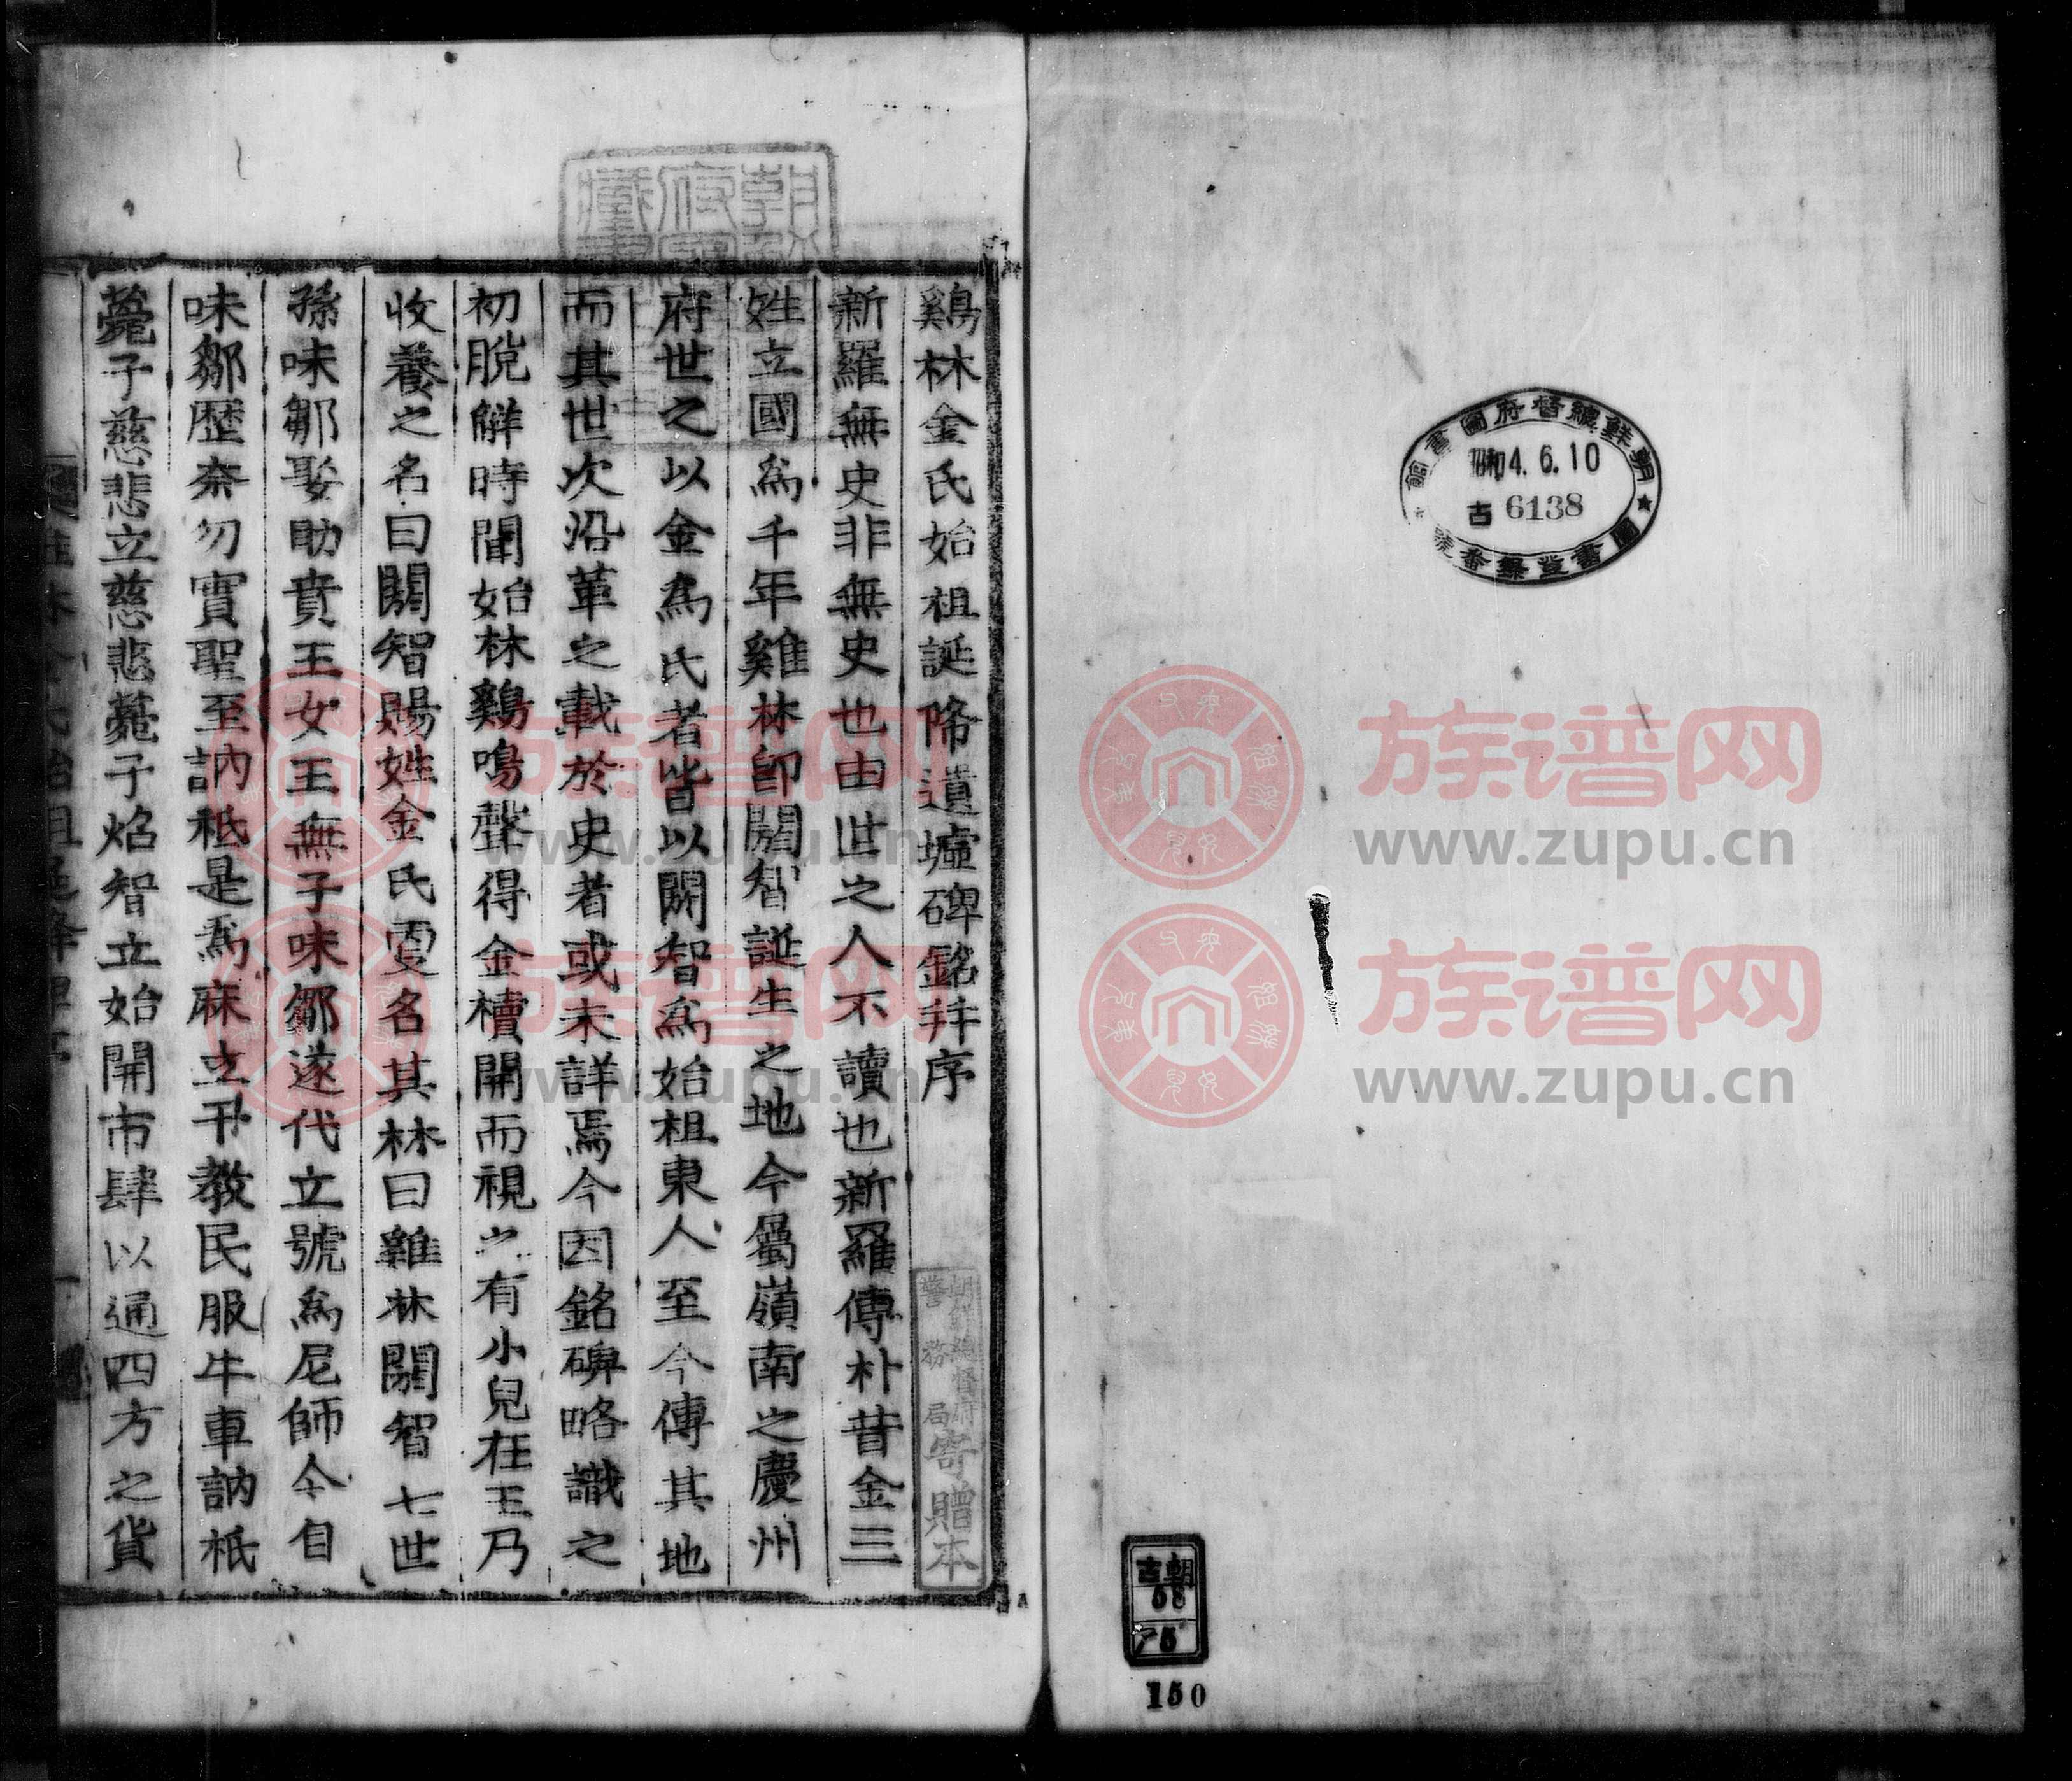 朝鮮總督府圖書館
昭和4.6.10
古 6138
圖書登錄番號
古朝
58
ア5
150
鷄林金氏始祖誕降遺墟碑銘幷序
新羅無史非無史也由世之人不讀也新羅傳朴昔金三
姓立國爲千年雞林卽閼智誕生之地今屬嶺南之慶州
府世之以金爲氏者皆以閼智爲始祖東人至今傳其地
而其世次沿革之載於史者或未詳焉今因銘碑略識之
初脫解時聞始林鷄鳴聲得金櫝開而視之有小兒在王乃
收養之名曰閼智賜姓金氏更名其林曰雞林閼智七世
孫味鄒娶助賁王女王無子味鄒遂代立號爲尼師今自
味鄒歷奈勿實聖至訥祗是爲麻立干敎民服牛車訥祗
薨子慈悲立慈悲薨子炤智立始開市肆以通四方之貨
朝鮮總督府
警務局
寄贈本
族谱网
www.zupu.cn
族谱网
www.zupu.cn
族谱网
www.zupu.cn
族谱网
www.zupu.cn